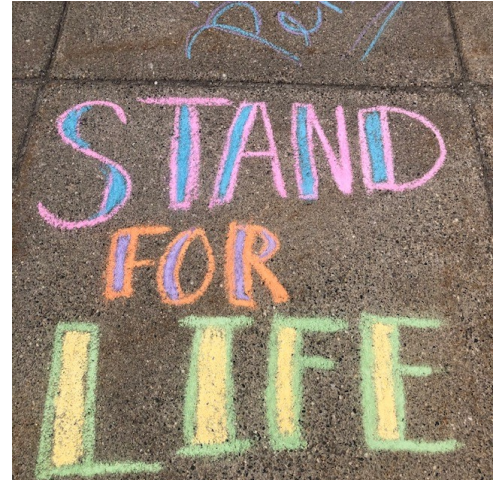 STAND
FOR
LIFE